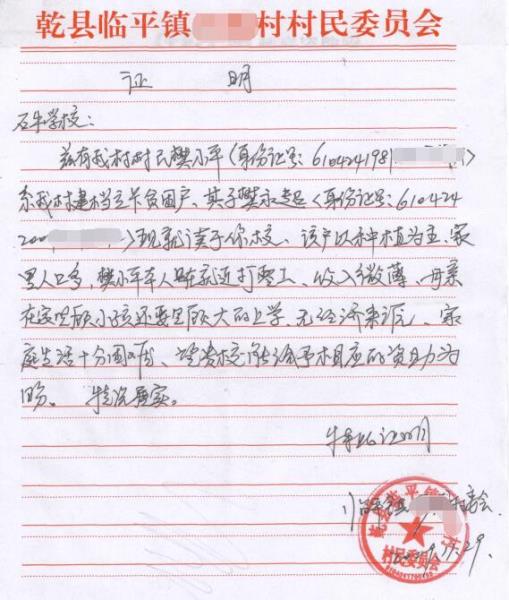 乾县临平镇 村村民委员会
证 明
石牛学校：
兹有我村村民樊小平（身份证号：610424198 ）
系我村建档立卡贫困户、其子樊永起（身份证号：610424
200 ）现就读于你校、该户以种植为主、家
里人口多，樊小平本人只在就近打零工、收入微薄、母亲
在家照顾小孩还要照顾大的上学、无经济来源、家
庭生活十分困难、望贵校能给予相应的资助为
盼。 情况属实。
特此证明
临平镇 村委会
乾县临平镇
村民委员会